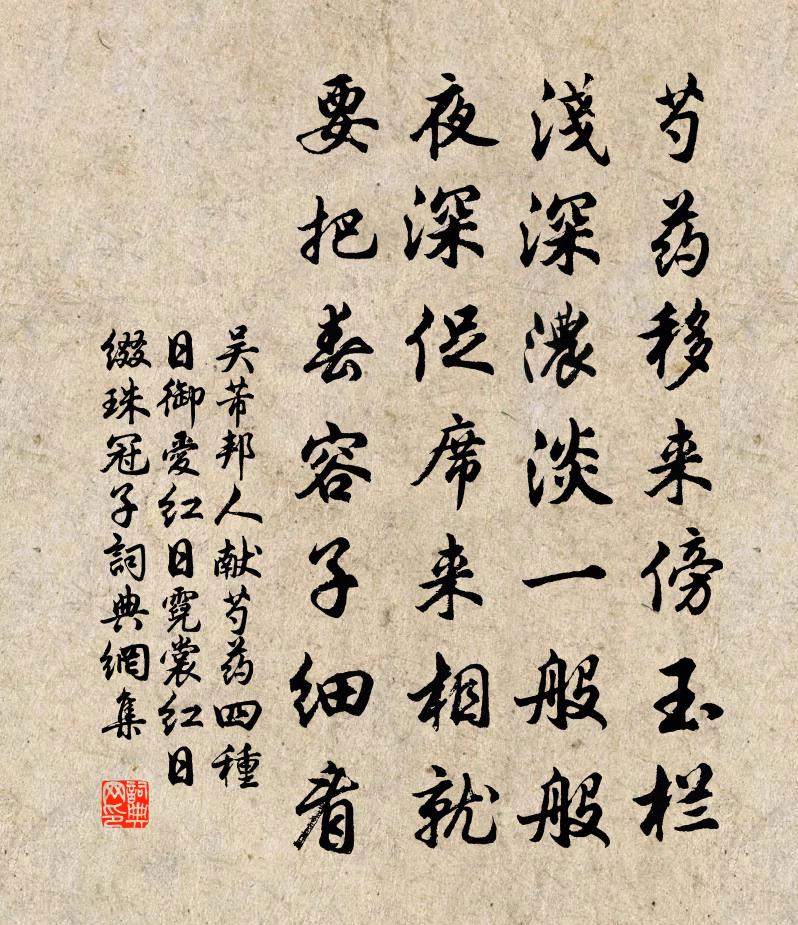 芍药移来傍玉栏
淺深濃淡一般般
夜深促席来相就
要把春容子细看
吴芾邦人献芍药四種
日御愛红日霓裳红日
缀珠冠子詞典網集
詞典网印